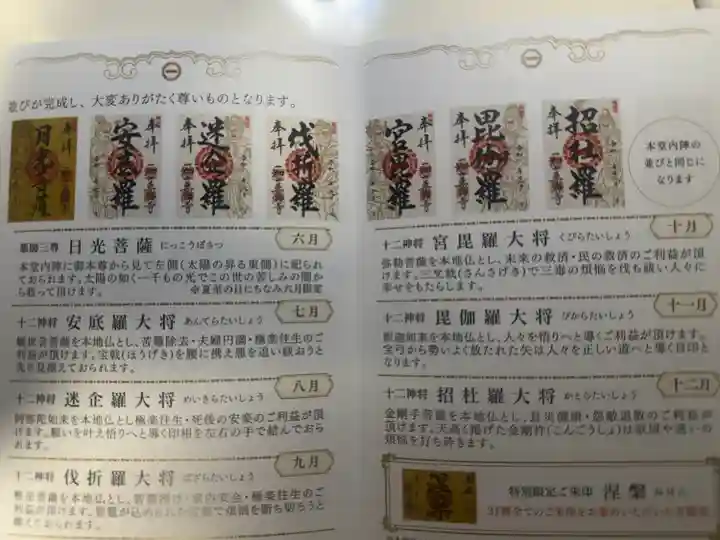 並びが完成し、大変ありがたく尊いものとなります。
奉拝
安底羅
奉拝
迷企羅
奉拝
伐折羅
奉拝
六月
薬師三尊 日光菩薩 にっこうぼさつ
本堂内陣に御本尊から見て左側(太陽の昇る東側)に祀られ
ておられます。太陽の如く一千もの光でこの世の苦しみの闇か
ら救って頂けます。 ※夏至の日にちなみ六月限定
七月
十二神将 安底羅大将 あんてらたいしょう
観世音菩薩を本地仏とし、苦難除去・夫婦円満・極楽往生のご
利益が頂けます。宝戟(ほうげき)を腰に携え悪を追い祓おうと
八月
十二神将 迷企羅大将 めいきらたいしょう
阿弥陀如来を本地仏とし極楽往生・死後の安楽のご利益が頂
けます。願いを叶え悟りへと導く印相を左右の手で結んでおら
れます。
九月
十二神将 伐折羅大将 ばざらたいしょう
宮毘羅
奉拝
毘伽羅
奉拝
招杜羅
奉拝
本堂内陣の
並びと同じに
なります
十月
十二神将 宮毘羅大将 くびらたいしょう
弥勒菩薩を本地仏とし、未来の救済・民の救済のご利益が頂
けます。三叉戟(さんさげき)で三毒の煩悩を伐ち祓い人々に
幸せをもたらします。
十一月
十二神将 毘伽羅大将 びからたいしょう
釈迦如来を本地仏とし、人々を悟りへと導くご利益が頂けます。
宝弓から勢いよく放たれた矢は人々を正しい道へと導く目印と
なります。
十二月
十二神将 招杜羅大将 かとらたいしょう
金剛手菩薩を本地仏とし、息災健康・怨敵退散のご利益が
頂けます。天高く掲げた金剛杵(こんごうしょ)は欲望や迷いの
煩悩を打ち砕きます。
特別限定ご朱印 涅槃 ねはん